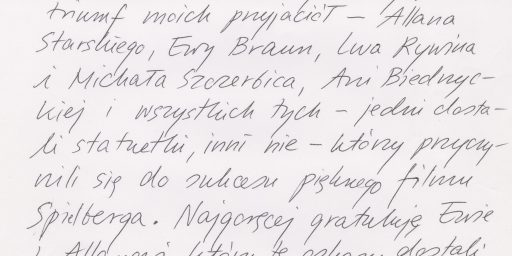 triumf moich przyjaciół – Allana
Starskiego, Ewy Braun, Lwa Rywina
i Michała Szczerbica, Ani Biedrzyc-
kiej i wszystkich tych – jedni dosta-
li statuetki, inni nie – którzy przyczy-
nili się do sukcesu pięknego filmu
Spielberga. Najgoręcej gratuluję Ewie
i Allanowi, którzy te oskary dostali